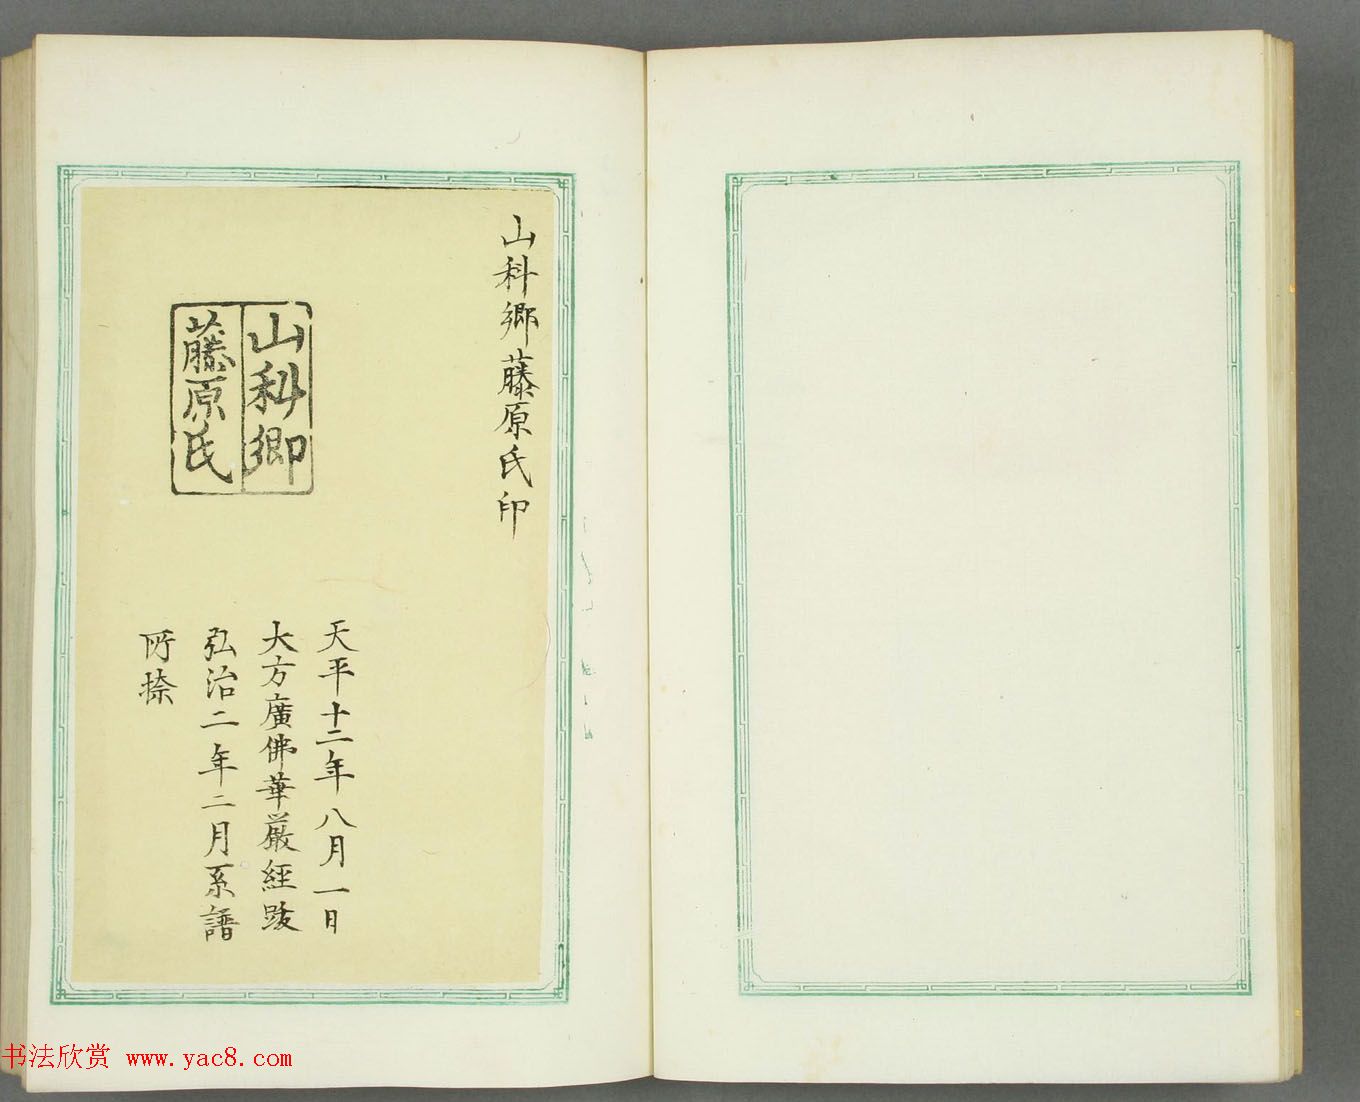 山科郷藤原氏印
山科郷
藤原氏
天平十二年八月一日
大方廣佛華嚴經跋
弘治二年二月系譜
所捺
书法欣赏 www.yac8.com